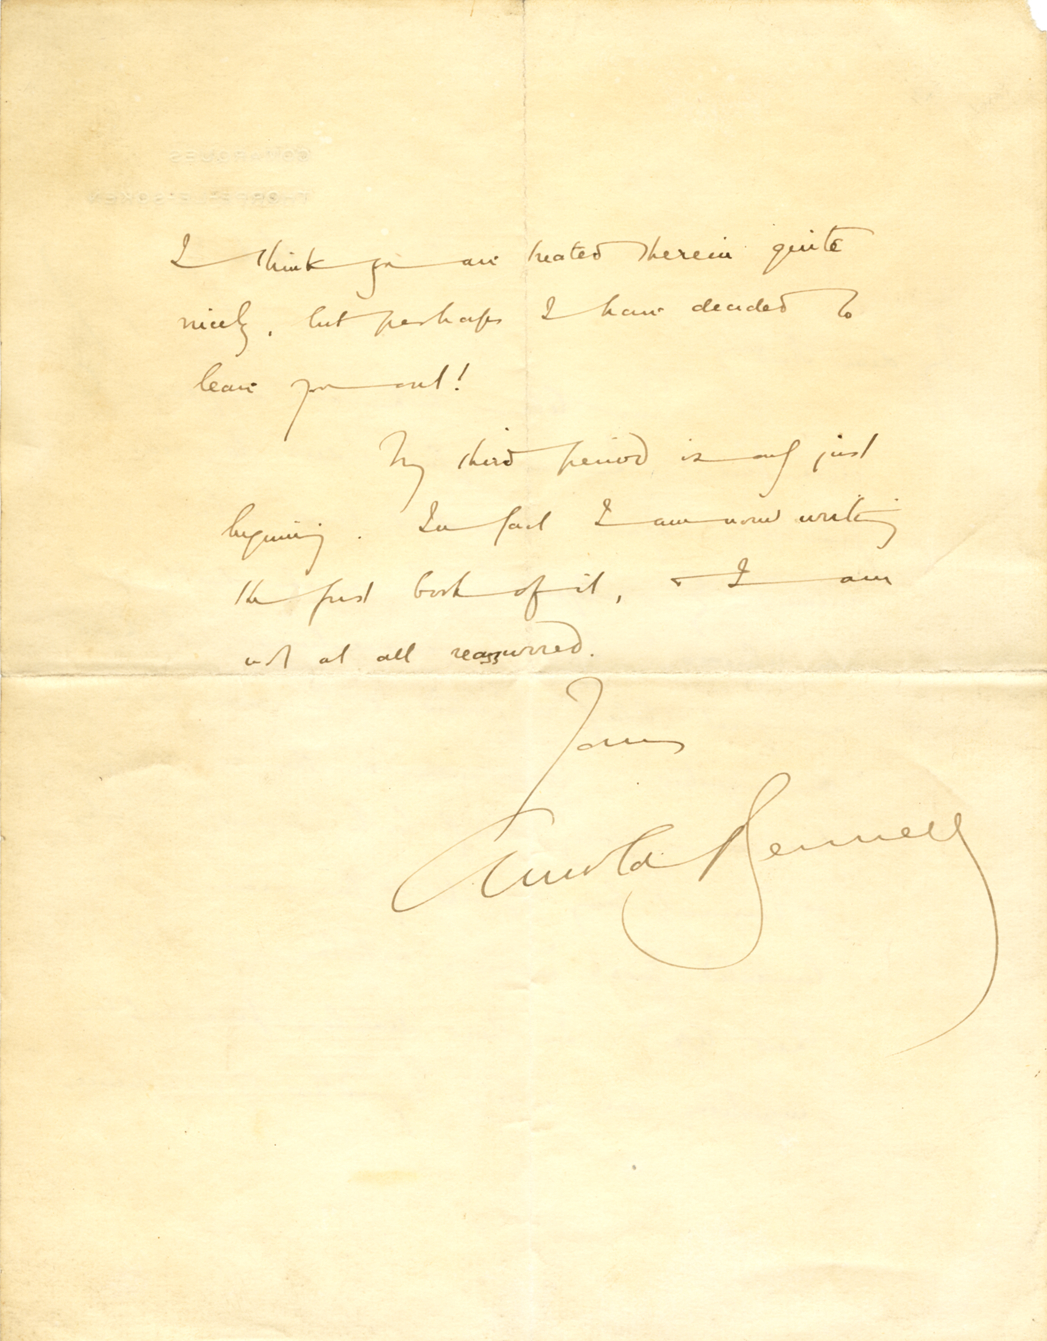 I think you are treated therein quite
nicely, but perhaps I have decided to
leave you out!
My third period is only just
beginning. In fact I am now writing
the first book of it, & I am
not at all reassured.
Yours
Arnold Bennett